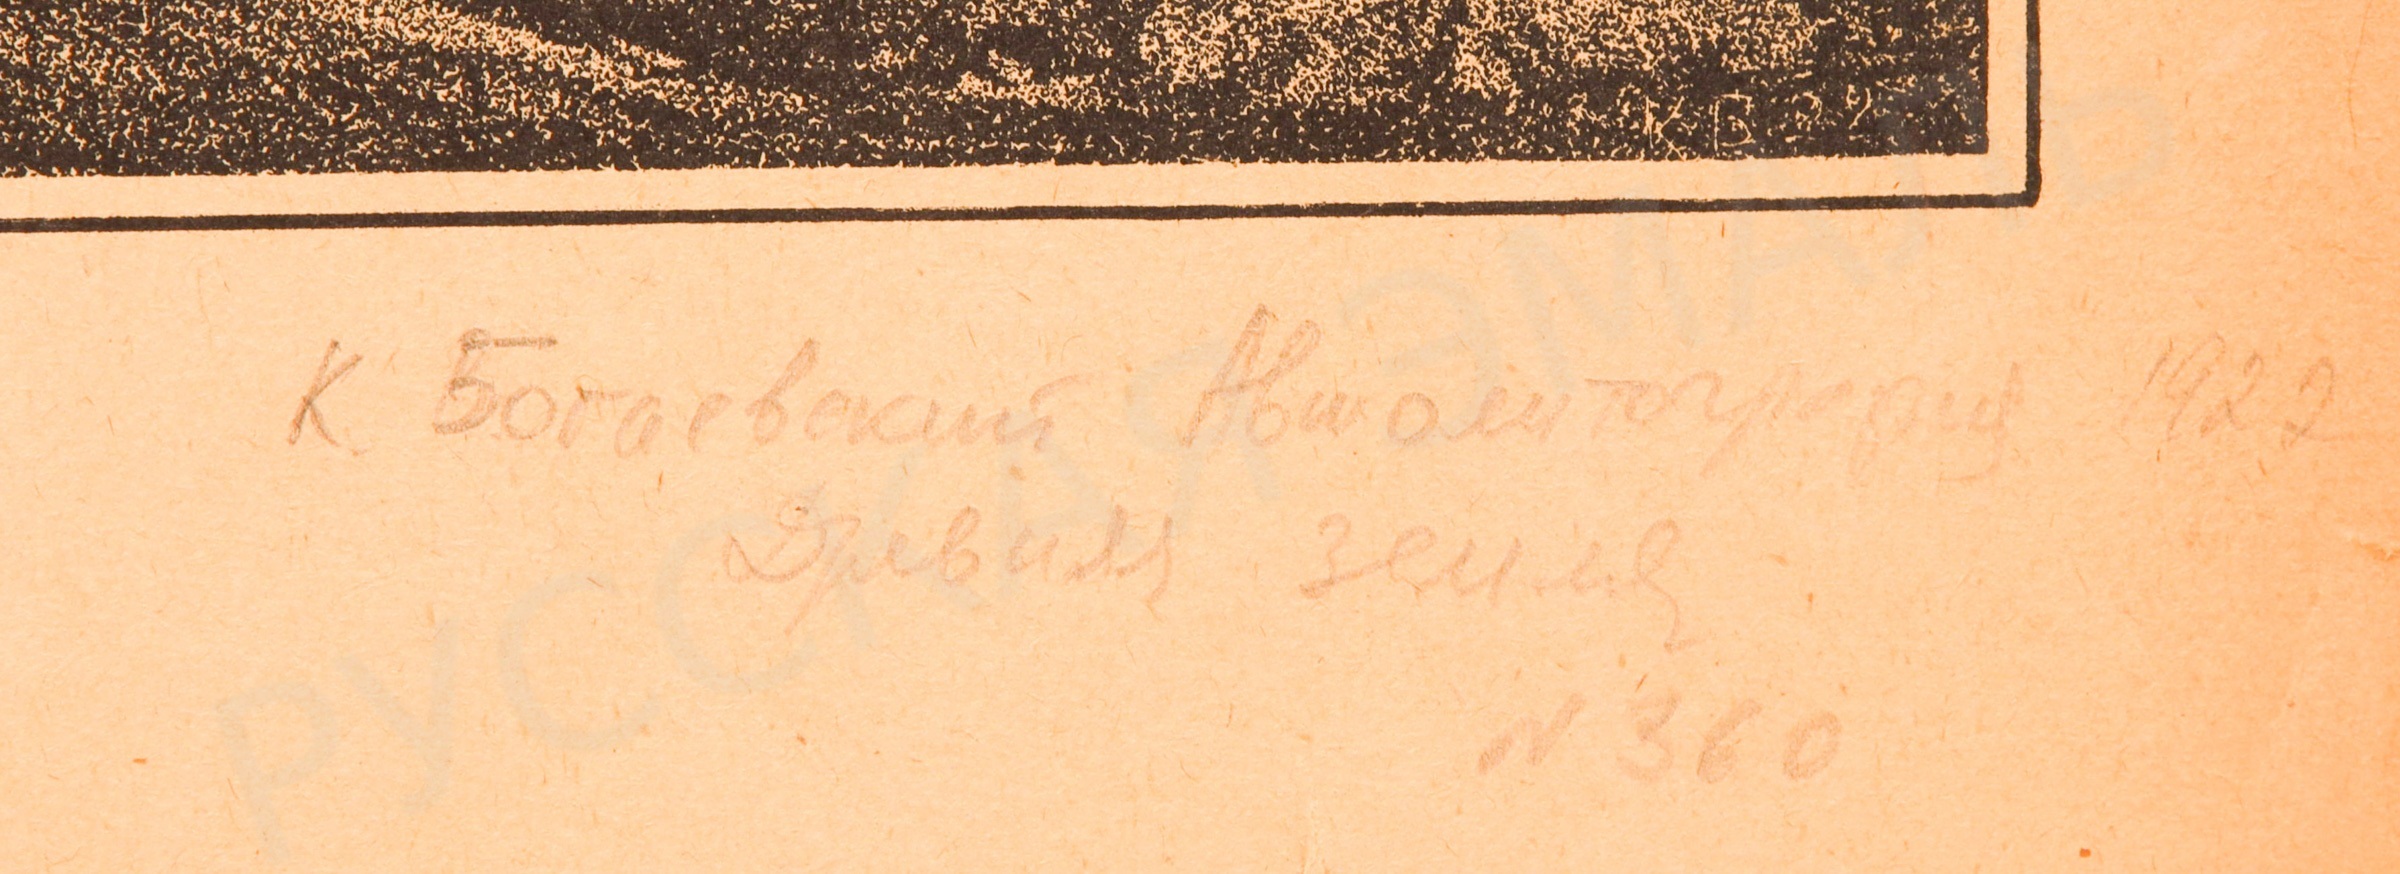 К Б 22
К Богаевский Автолитография 1922
Древняя земля
N 360
РУССКАЯ ЭМАЛЬ